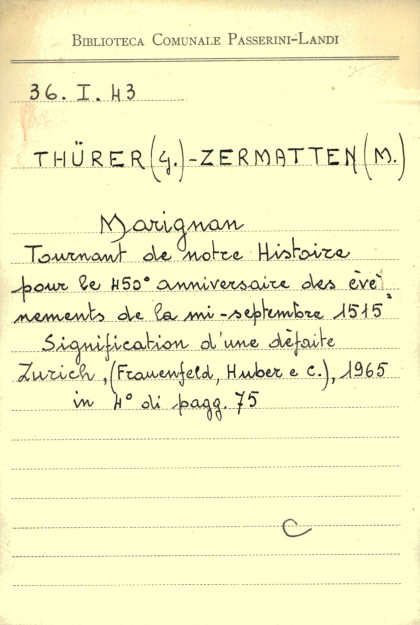 BIBLIOTECA COMUNALE PASSERINI-LANDI
36. I. 43
THÜRER (G.) - ZERMATTEN (M.)
Marignan
Tournant de notre Histoire
pour le 450° anniversaire des évè
nements de la mi-septembre 1515
Signification d'une défaite
Zurich, (Frauenfeld, Huber e C.), 1965
in 4° di pagg. 75
C